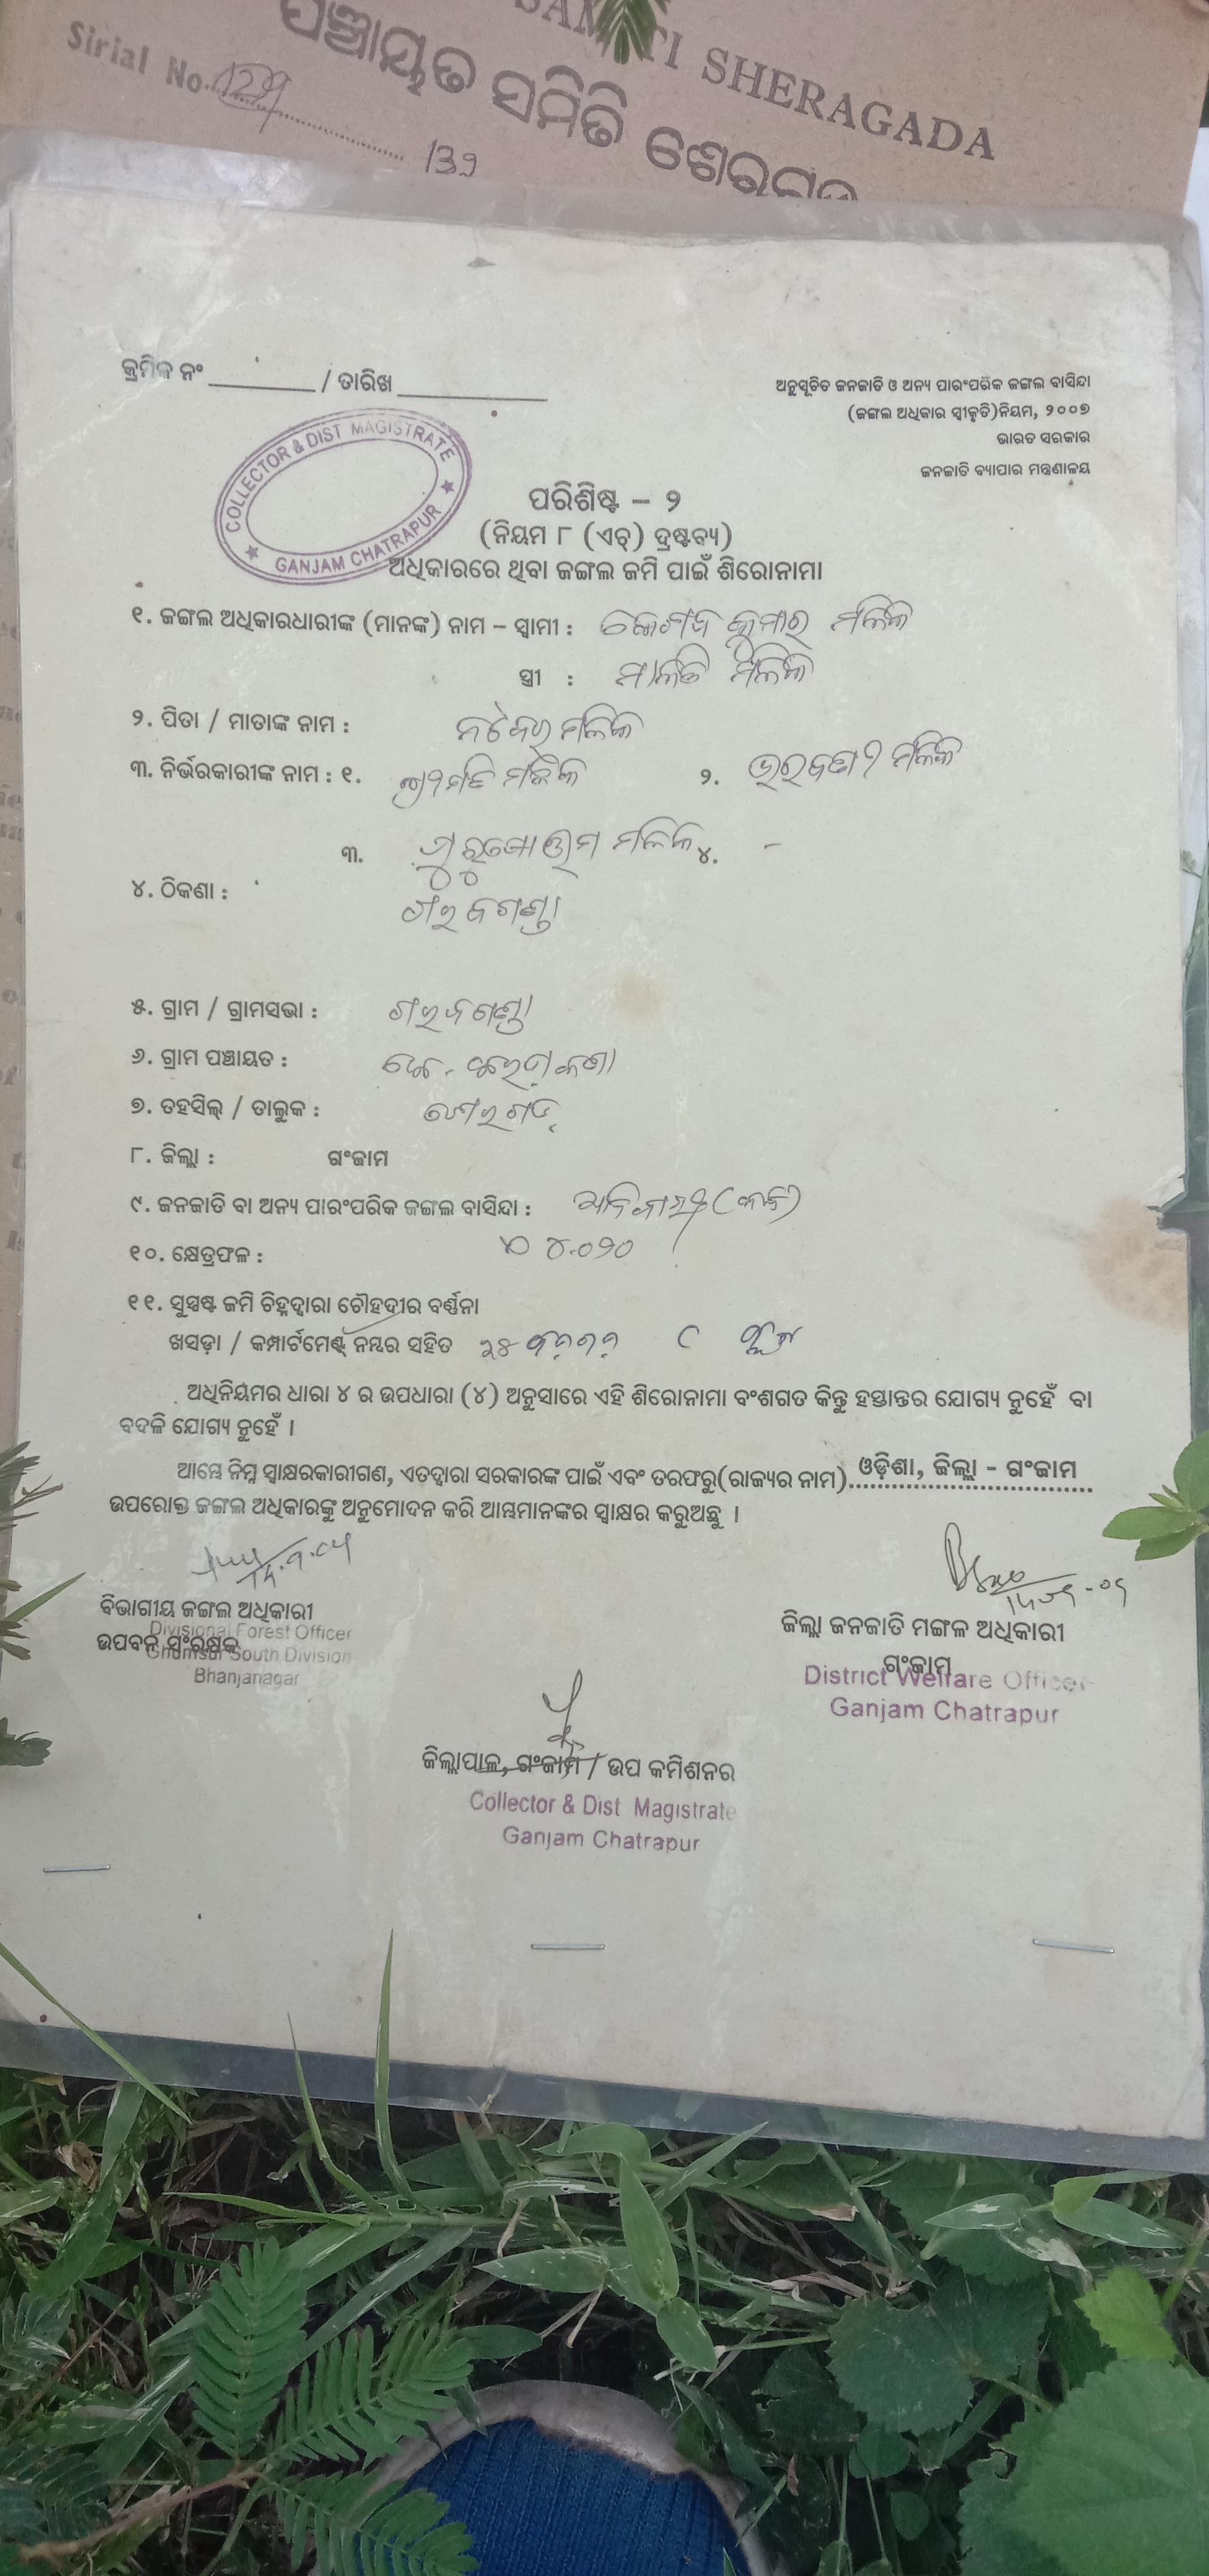 SAMITI SHERAGADA
ପଞ୍ଚାୟତ ସମିତି ଶେରଗଡ
Sirial No. 129
132
କ୍ରମିକ ନଂ ________ / ତାରିଖ ____________
ଅନୁସୂଚିତ ଜନଜାତି ଓ ଅନ୍ୟ ପାରଂପରିକ ଜଙ୍ଗଲ ବାସିନ୍ଦା
(ଜଙ୍ଗଲ ଅଧିକାର ସ୍ୱୀକୃତି)ନିୟମ, ୨୦୦୭
ଭାରତ ସରକାର
ଜନଜାତି ବ୍ୟାପାର ମନ୍ତ୍ରଣାଳୟ
COLLECTOR & DIST MAGISTRATE
GANJAM CHATRAPUR
ପରିଶିଷ୍ଟ – ୨
(ନିୟମ ୮ (ଏଚ୍) ଦ୍ରଷ୍ଟବ୍ୟ)
ଅଧିକାରରେ ଥିବା ଜଙ୍ଗଲ ଜମି ପାଇଁ ଶିରୋନାମା
୧. ଜଙ୍ଗଲ ଅଧିକାରଧାରୀଙ୍କ (ମାନଙ୍କ) ନାମ – ସ୍ୱାମୀ : କୁମାର ମଲିକ
ସ୍ତ୍ରୀ : ମାଳତି ମଲିକ
୨. ପିତା / ମାତାଙ୍କ ନାମ : ମଲିକ
୩. ନିର୍ଭରକାରୀଙ୍କ ନାମ : ୧. ମଲିକ ୨. ମଲିକ
୩. ମଲିକ ୪. -
୪. ଠିକଣା :
୫. ଗ୍ରାମ / ଗ୍ରାମସଭା :
୬. ଗ୍ରାମ ପଞ୍ଚାୟତ :
୭. ତହସିଲ୍ / ତାଲୁକ : ଶେରଗଡ଼
୮. ଜିଲ୍ଲା : ଗଂଜାମ
୯. ଜନଜାତି ବା ଅନ୍ୟ ପାରଂପରିକ ଜଙ୍ଗଲ ବାସିନ୍ଦା :
୧୦. କ୍ଷେତ୍ରଫଳ : ୪.୦୨୦
୧୧. ସୁସ୍ପଷ୍ଟ ଜମି ଚିହ୍ନଦ୍ୱାରା ଚୌହଦୀର ବର୍ଣ୍ଣନା
ଖସଡ଼ା / କମ୍ପାର୍ଟମେଣ୍ଟ୍ ନମ୍ୱର ସହିତ
ଅଧିନିୟମର ଧାରା ୪ ର ଉପଧାରା (୪) ଅନୁସାରେ ଏହି ଶିରୋନାମା ବଂଶଗତ କିନ୍ତୁ ହସ୍ତାନ୍ତର ଯୋଗ୍ୟ ନୁହେଁ ବା
ବଦଳି ଯୋଗ୍ୟ ନୁହେଁ ।
ଆମ୍ଭେ ନିମ୍ନ ସ୍ୱାକ୍ଷରକାରୀଗଣ, ଏତଦ୍ୱାରା ସରକାରଙ୍କ ପାଇଁ ଏବଂ ତରଫରୁ(ରାଜ୍ୟର ନାମ) ଓଡ଼ିଶା, ଜିଲ୍ଲା - ଗଂଜାମ
ଉପରୋକ୍ତ ଜଙ୍ଗଲ ଅଧିକାରଙ୍କୁ ଅନୁମୋଦନ କରି ଆମ୍ଭମାନଙ୍କର ସ୍ୱାକ୍ଷର କରୁଅଛୁ ।
ବିଭାଗୀୟ ଜଙ୍ଗଲ ଅଧିକାରୀ
ଉପବନ ସଂରକ୍ଷକ
Divisional Forest Officer
Ghumsur South Division
Bhanjanagar
ଜିଲ୍ଲା ଜନଜାତି ମଙ୍ଗଳ ଅଧିକାରୀ
ଗଂଜାମ
District Welfare Officer
Ganjam Chatrapur
ଜିଲ୍ଲାପାଳ, ଗଂଜାମ / ଉପ କମିଶନର
Collector & Dist Magistrate
Ganjam Chatrapur